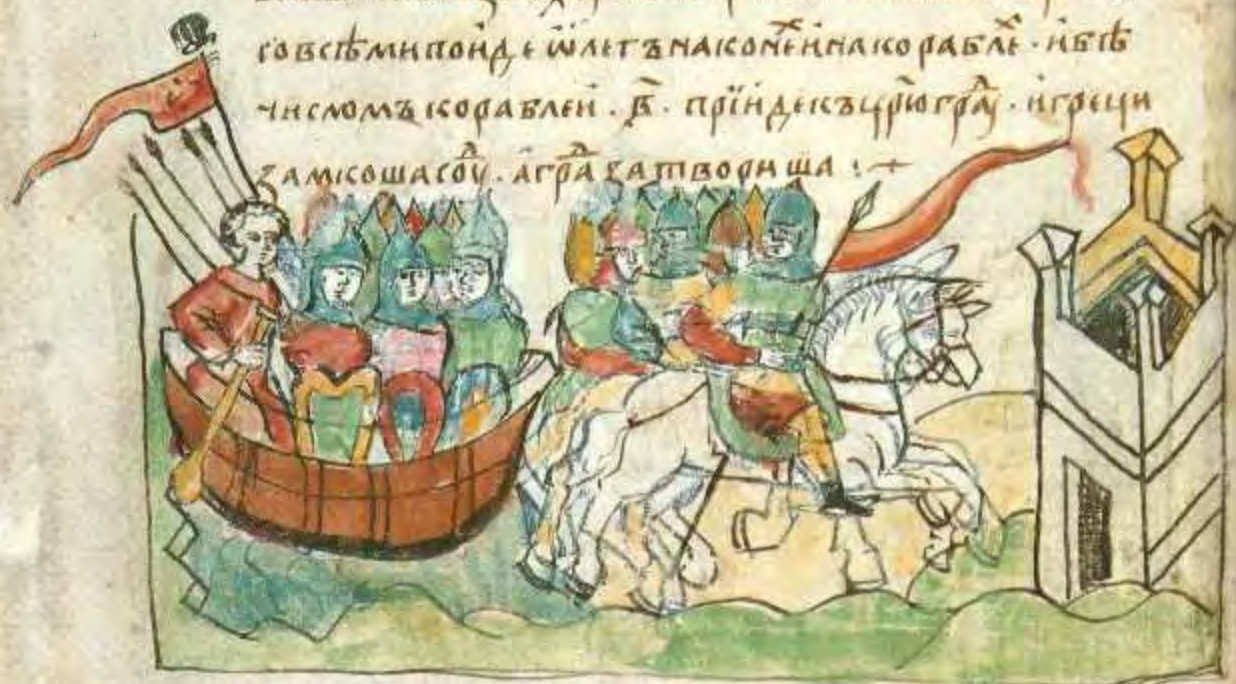 со всѣми поиде ѡлегъ на конеⷯ и на кораблеⷯ · и бѣ
числомъ кораблеи · в҃ · прїиде къ цр҃югра · и греци
замкоша соуⷣ · а граⷣ затвориша :